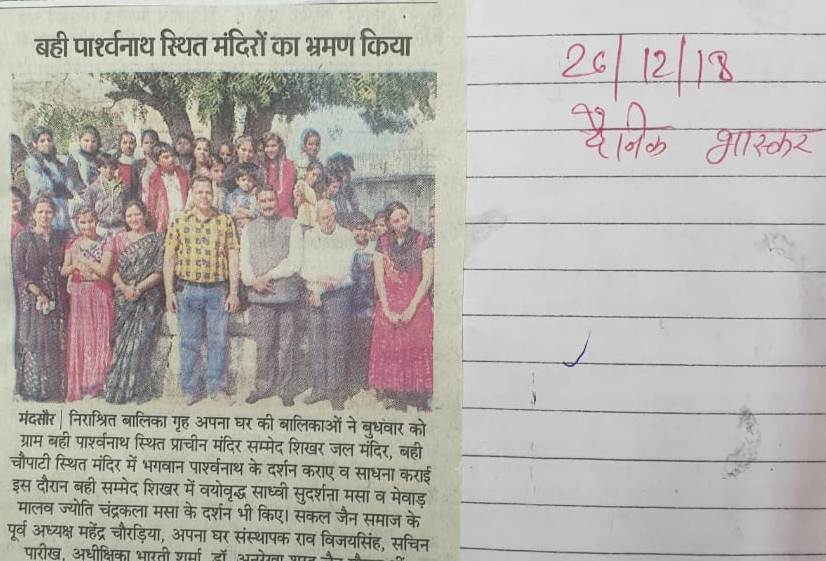 बही पार्श्वनाथ स्थित मंदिरों का भ्रमण किया
मंदसौर | निराश्रित बालिका गृह अपना घर की बालिकाओं ने बुधवार को
ग्राम बही पार्श्वनाथ स्थित प्राचीन मंदिर सम्मेद शिखर जल मंदिर, बही
चौपाटी स्थित मंदिर में भगवान पार्श्वनाथ के दर्शन कराए व साधना कराई
इस दौरान बही सम्मेद शिखर में वयोवृद्ध साध्वी सुदर्शना मसा व मेवाड़
मालव ज्योति चंद्रकला मसा के दर्शन भी किए। सकल जैन समाज के
पूर्व अध्यक्ष महेंद्र चौरड़िया, अपना घर संस्थापक राव विजयसिंह, सचिन
पारीख, अधीक्षिका भारती शर्मा, डॉ.
26/12/18
दैनिक भास्कर